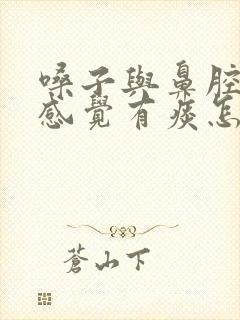 嗓子與鼻腔
感覺有痰怎
蒼山下